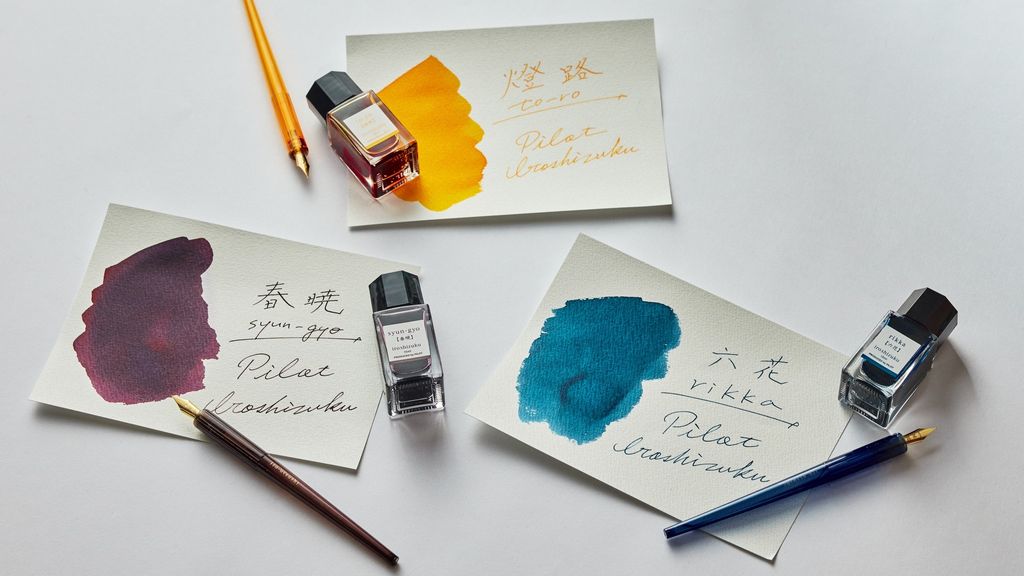 燈路
to-ro
Pilot
iroshizuku
春暁
syun-gyo
Pilot
iroshizuku
syun-gyo
【春暁】
iroshizuku
六花
rikka
Pilot
iroshizuku
rikka
【六花】
iroshizuku